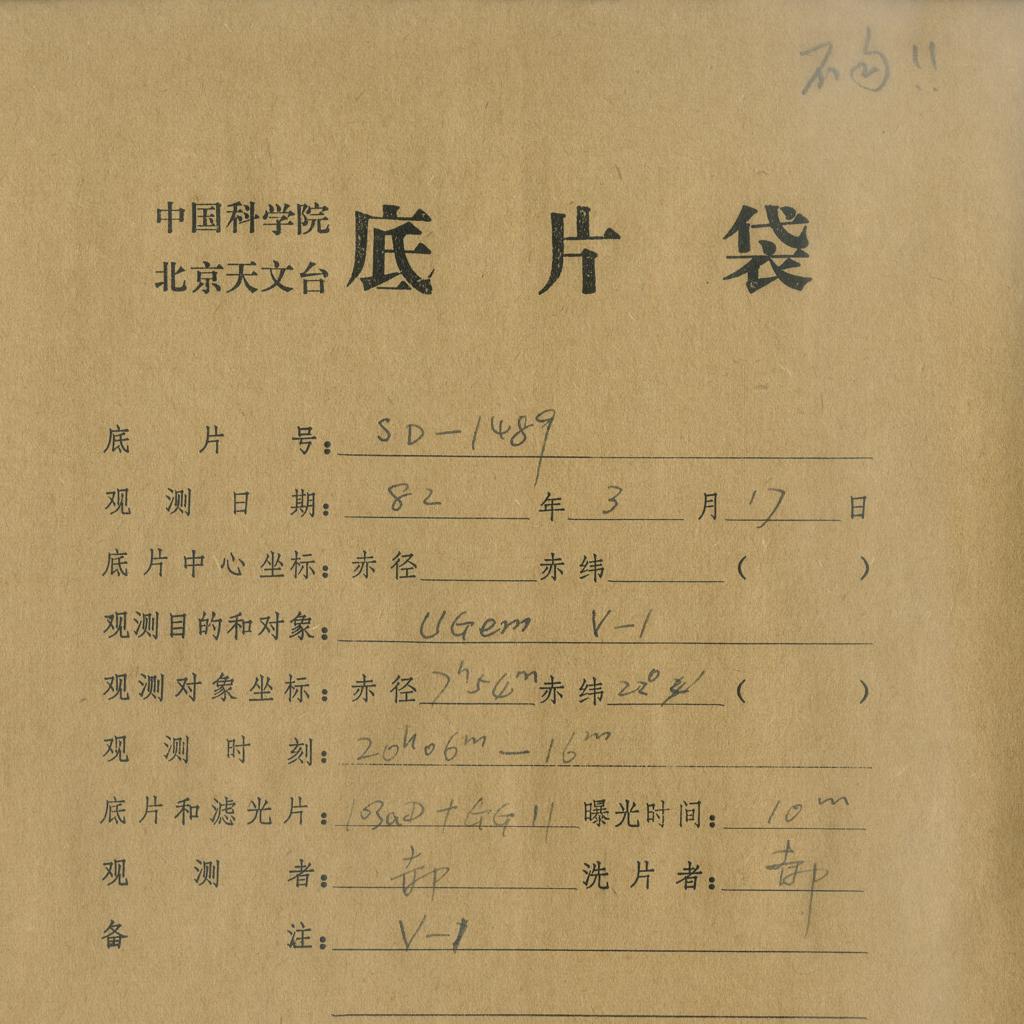 中国科学院
北京天文台
底片袋
底片号：SD-1489
观测日期：82年3月17日
底片中心坐标：赤径 赤纬 （ ）
观测目的和对象：UGem V-1
观测对象坐标：赤径7ʰ54ᵐ赤纬22° （ ）
观测时刻：20ʰ06ᵐ—16ᵐ
底片和滤光片：103aD+GG11 曝光时间：10ᵐ
观测者： 洗片者：
备注：V-1